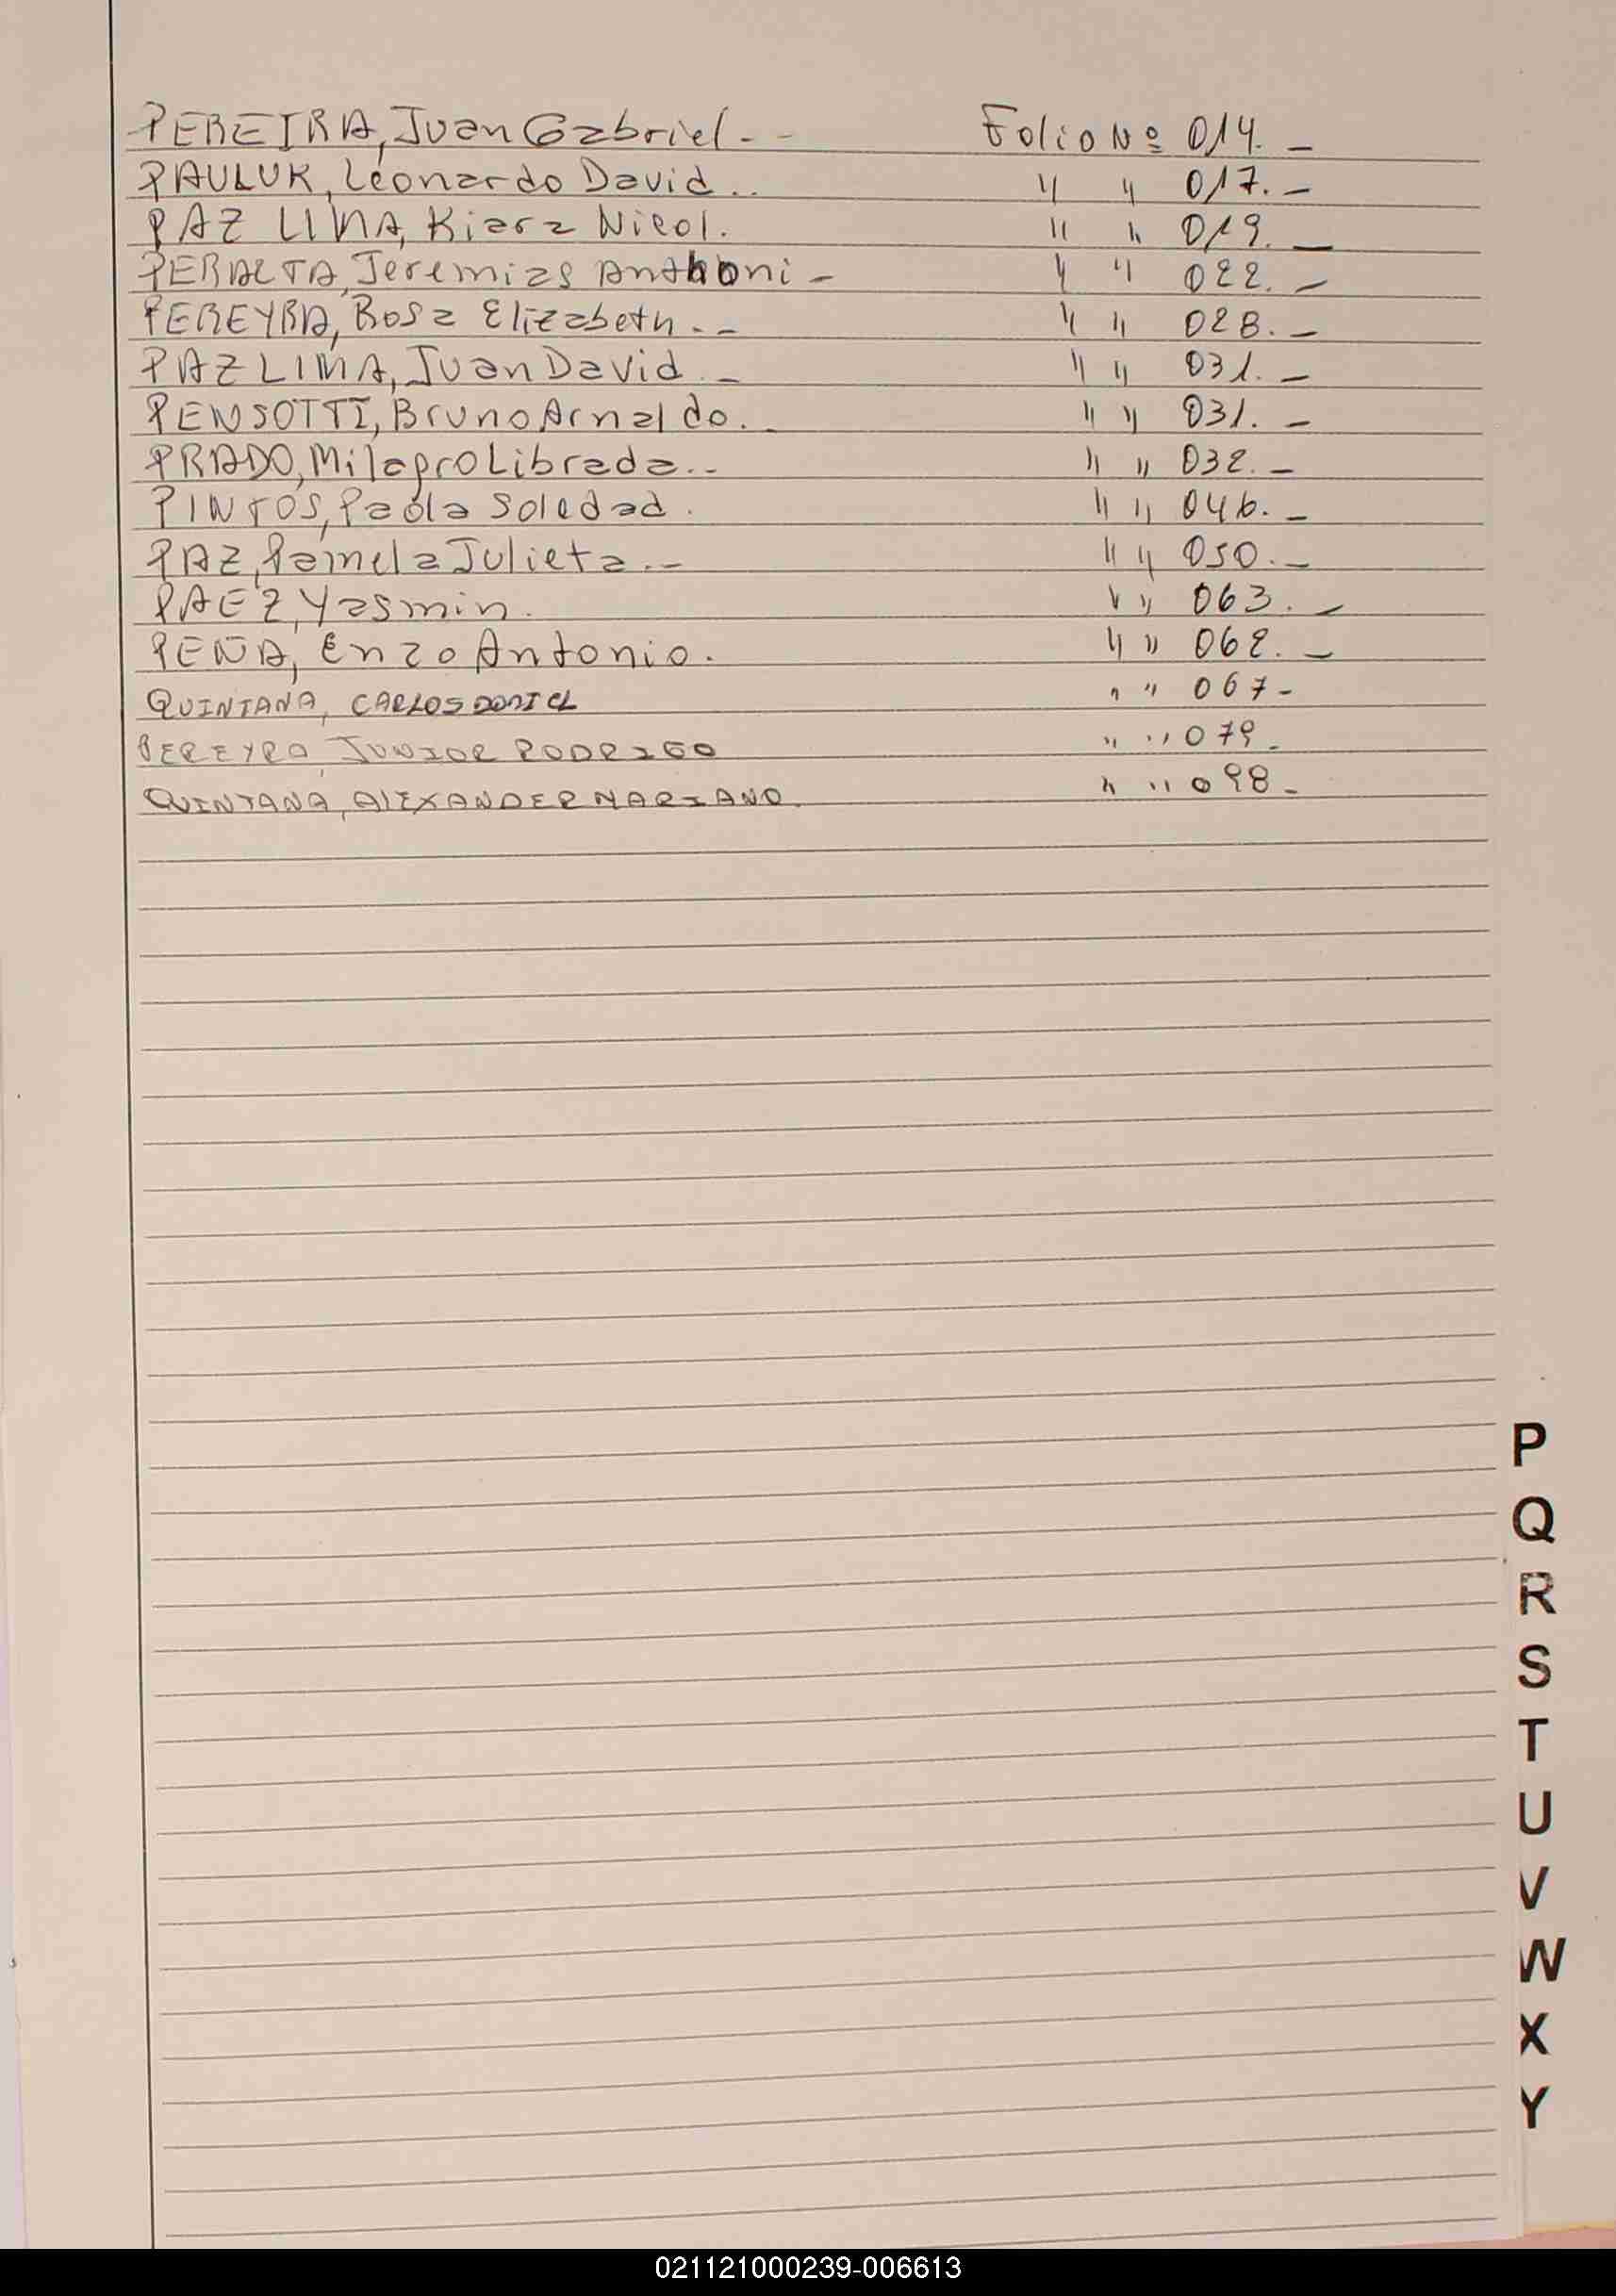 PEREIRA, Juan Gabriel. - - Folio Nº 014. -
PAULUK, Leonardo David.. " " 017. -
PAZ LIMA, Kiara Nicol. " " 019. -
PERALTA, Jeremias Anthoni - " " 022. -
PEREYRA, Rosa Elizabeth. - " " 028. -
PAZ LIMA, Juan David. - " " 031. -
PENSOTTI, Bruno Arnaldo. - " " 031. -
PRADO, Milagro Librada. - " " 032. -
PINTOS, Paola Soledad. " " 046. -
PAZ, Pamela Julieta. - " " 050. -
PAEZ, Yasmin. " " 063. -
PEÑA, Enzo Antonio. " " 062. -
QUINTANA, CARLOS DANIEL " " 067 -
PEREYRA, JUNIOR RODRIGO " " 079 -
QUINTANA, ALEXANDER MARIANO. " " 098 -
P
Q
R
S
T
U
V
W
X
Y
021121000239-006613